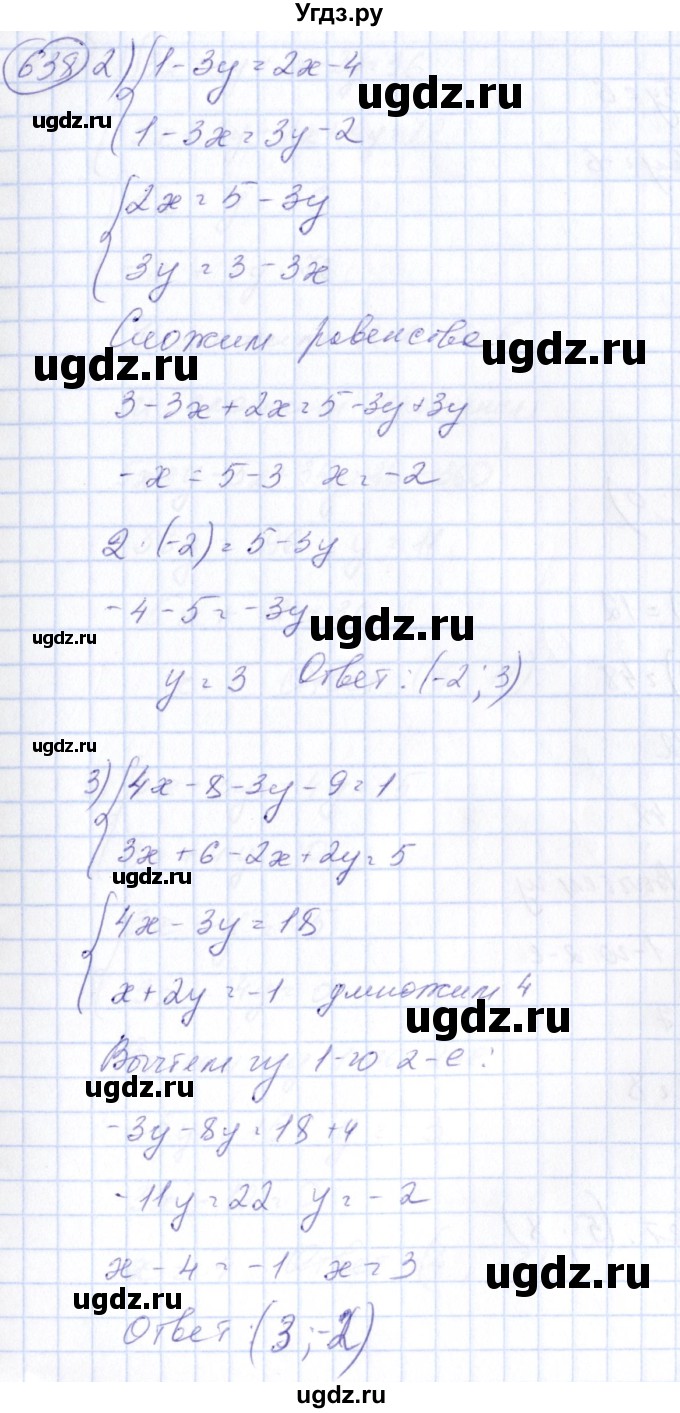 Угдз.ру
638 2) { 1-3y=2x-4
ugdz.ru
ugdz.ru
1-3x=3y-2
{ 2x=5-3y
3y=3-3x
Сложим равенства
ugdz.ru
ugdz.ru
3-3x+2x=5-3y+3y
-x=5-3 x=-2
2·(-2)=5-3y
-4-5=-3y
ugdz.ru
ugdz.ru
y=3 Ответ: (-2; 3)
ugdz.ru
3) { 4x-8-3y-9=1
3x+6-2x+2y=5
ugdz.ru
{ 4x-3y=18
x+2y=-1 умножим 4
ugdz.ru
Вычтем из 1-го 2-е:
ugdz.ru
-3y-8y=18+4
-11y=22 y=-2
x-4=-1 x=3
ugdz.ru
ugdz.ru
Ответ: (3; -2)
ugdz.ru